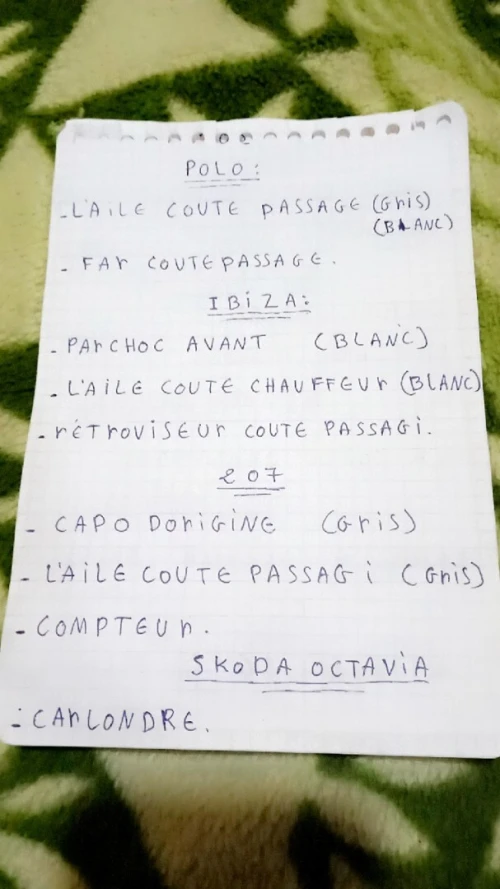 POLO:
- L'AILE COUTE PASSAGE (Gris)
(BLANC)
- FAr COUTE PASSAGE.
IBIZA:
- PArCHOC AVANT (BLANC)
- L'AILE COUTE CHAUFFEUr (BLANC)
- rÉTrOVISEUr COUTE PASSAGi.
207
- CAPO DOriGiNE (Gris)
- L'AiLE COUTE PASSAGi (Gris)
- COMPTEUr.
SKODA OCTAViA
- CArLONDRE.